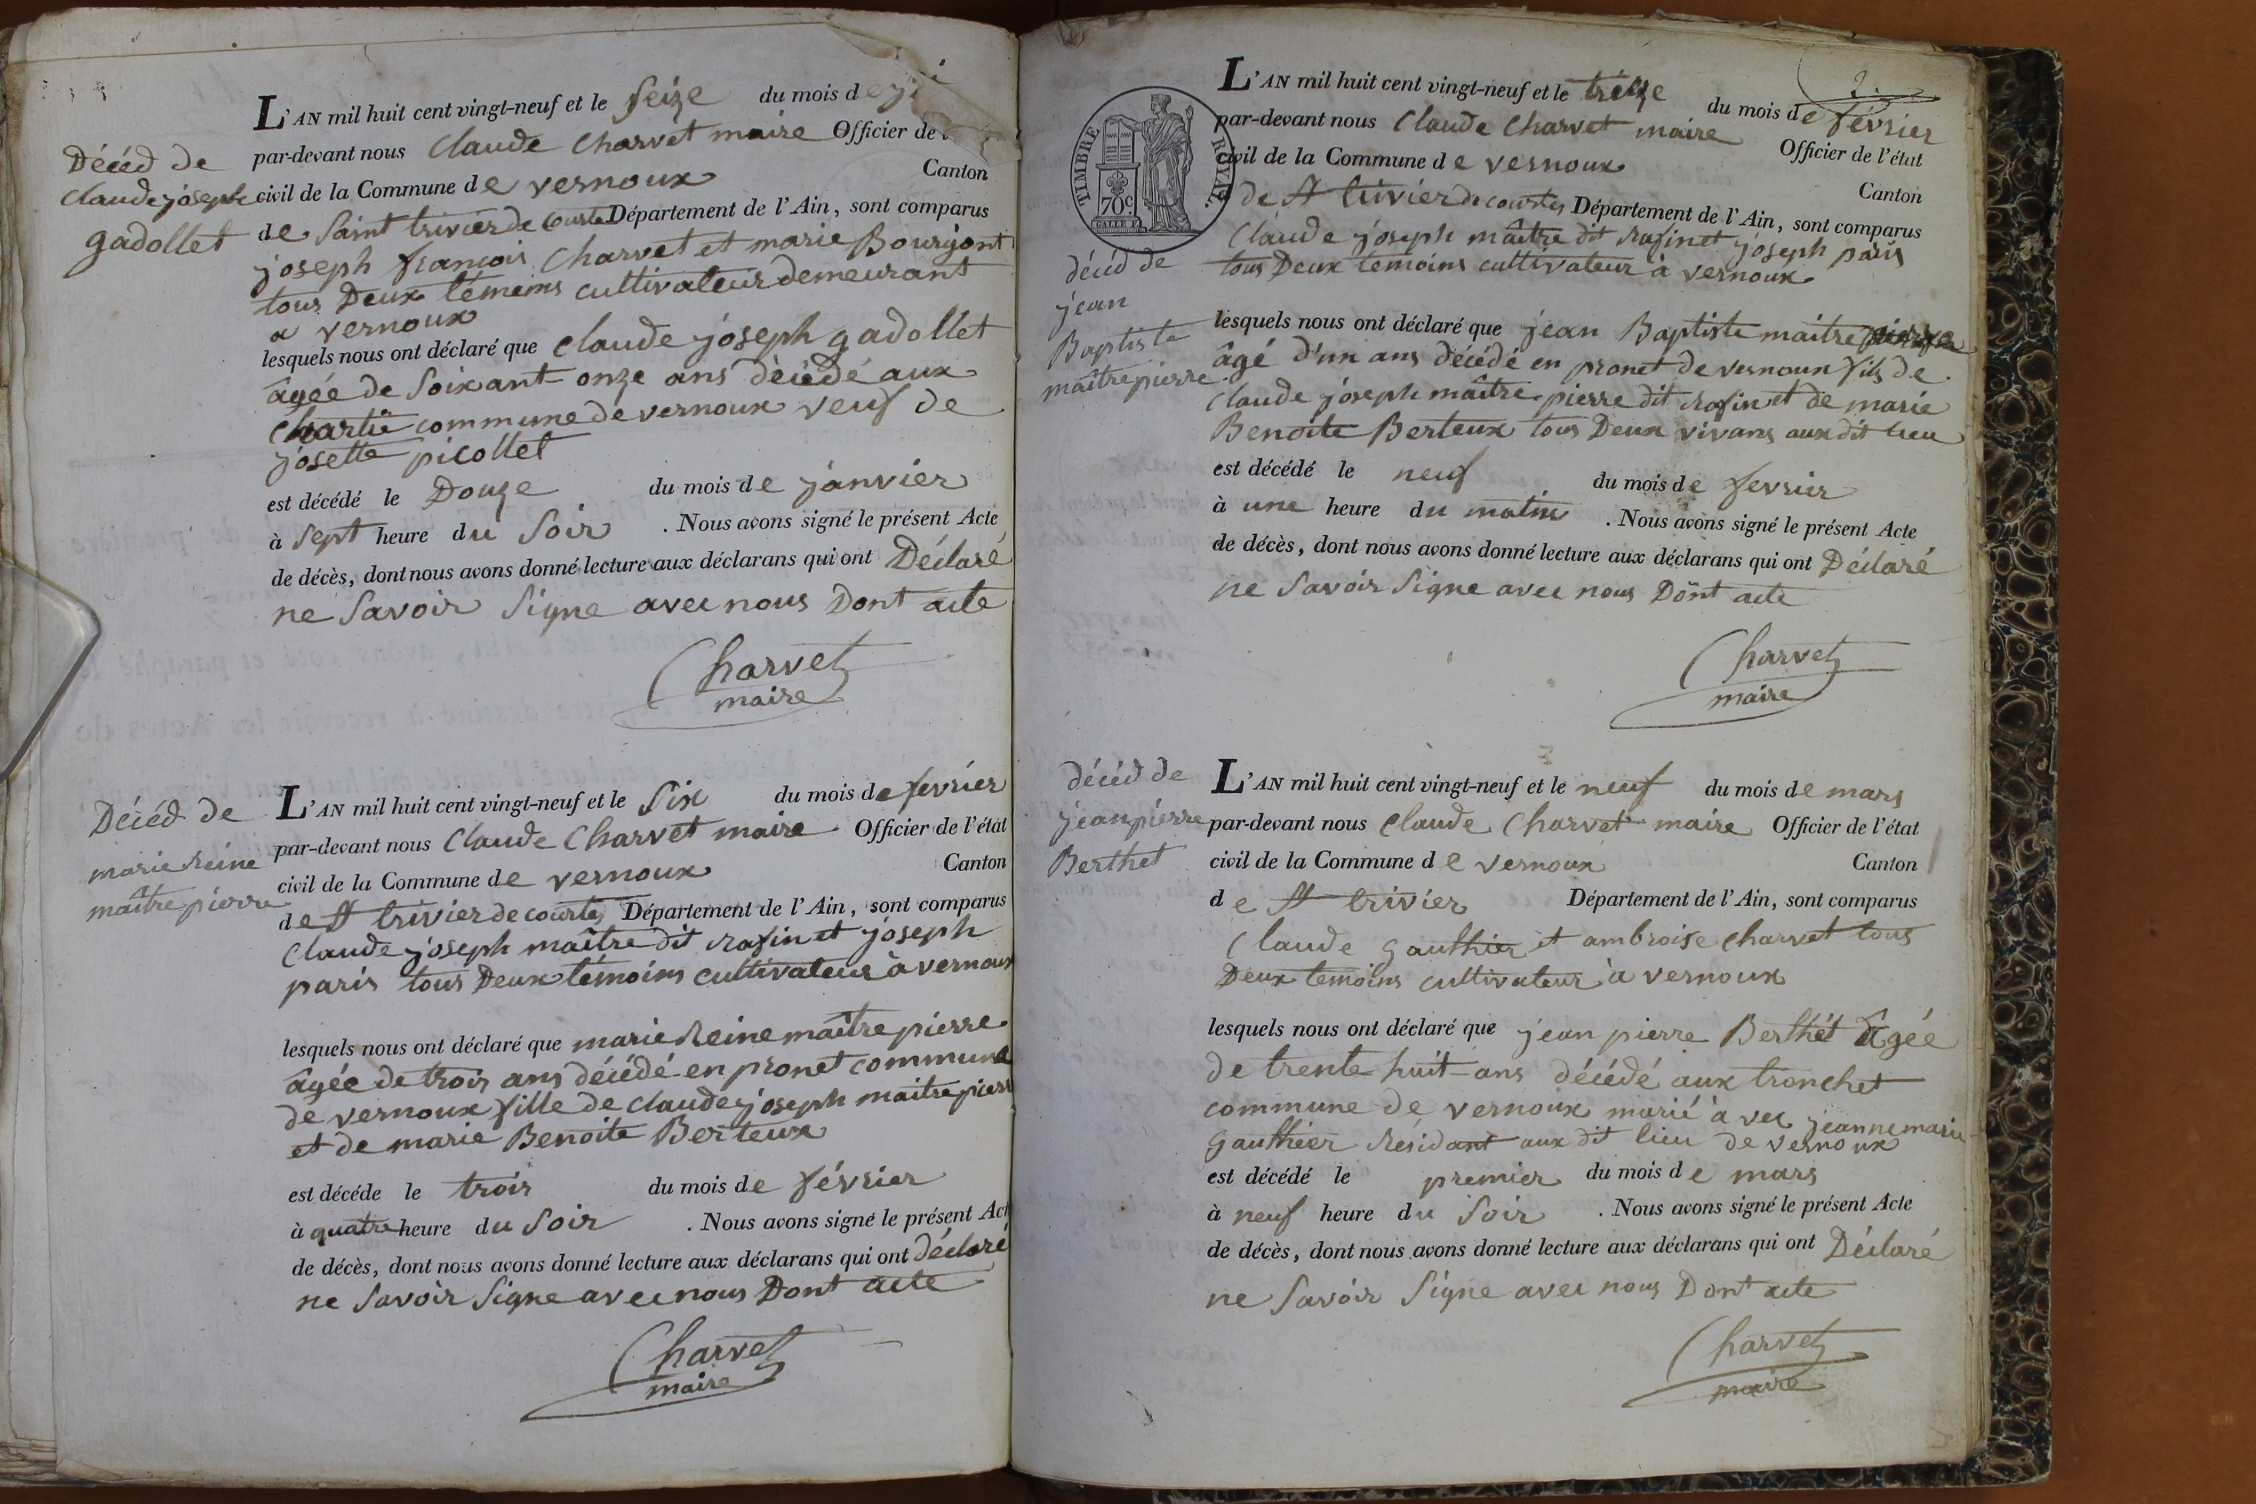 Décéd de
claude joseph
gadollet
L'AN mil huit cent vingt-neuf et le seize du mois de
par-devant nous claude charvet maire Officier de
civil de la Commune de vernoux Canton
de saint trivier de courte Département de l'Ain, sont comparus
joseph francois charvet et marie Bourgont
tous Deux témems cultivateur demeurant
a vernoux
lesquels nous ont déclaré que claude joseph gadollet
âgée de soixant onze ans décédé aux
commune de vernoux veuf de
josette picollet
est décédé le Douze du mois de janvier
à sept heure du soir . Nous avons signé le présent Acte
de décès, dont nous avons donné lecture aux déclarans qui ont Déclaré
ne savoir signe avec nous Dont acte
Charvet
maire
Décéd de
marie reine
maître pierre
L'AN mil huit cent vingt-neuf et le six du mois de fevrier
par-devant nous claude charvet maire Officier de l'état
civil de la Commune de vernoux Canton
de St trivier de courtes Département de l'Ain, sont comparus
claude joseph maître dit rafin et joseph
paris tous Deux témoins cultivateur à vernoux
lesquels nous ont déclaré que marie reine maître pierre
âgée de trois ans décédé en pronet commune
de vernoux fille de claude joseph maitre pierre
et de marie Benoite Berteux
est décéde le trois du mois de février
à quatre heure du soir . Nous avons signé le présent Act
de décès, dont nous avons donné lecture aux déclarans qui ont déclaré
ne savoir signe avec nous Dont acte
Charvet
maire
2.
TIMBRE ROYAL.
70c.
décéd de
jean
Baptiste
maître pierre
L'AN mil huit cent vingt-neuf et le treize du mois de février
par-devant nous claude charvet maire Officier de l'état
civil de la Commune de vernoux Canton
de St trivier de courtes Département de l'Ain, sont comparus
claude joseph maître dit rafin et joseph paris
tous Deux témoins cultivateur à vernoux
lesquels nous ont déclaré que jean Baptiste maitre pierre
âgé d'un ans décédé en pronet de vernoux fils de
claude joseph maître pierre dit rafin et de marie
Benoite Berteux tous Deux vivans aux dit lieu
est décédé le neuf du mois de fevrier
à une heure du matin . Nous avons signé le présent Acte
de décès, dont nous avons donné lecture aux déclarans qui ont Déclaré
ne savoir signe avec nous Dont acte
Charvet
maire
décéd de
jean pierre
Berthet
L'AN mil huit cent vingt-neuf et le neuf du mois de mars
par-devant nous claude charvet maire Officier de l'état
civil de la Commune de vernoux Canton
de St trivier Département de l'Ain, sont comparus
claude gauthier et ambroise charvet tous
Deux temoins cultivateur à vernoux
lesquels nous ont déclaré que jean pierre Berthét âgée
de trente huit ans décédé aux tronchet
commune de vernoux marié avec jeanne marie
gauthier résidant aux dit lieu de vernoux
est décédé le premier du mois de mars
à neuf heure du soir . Nous avons signé le présent Acte
de décès, dont nous avons donné lecture aux déclarans qui ont Déclaré
ne savoir signe avec nous Dont acte
Charvet
maire